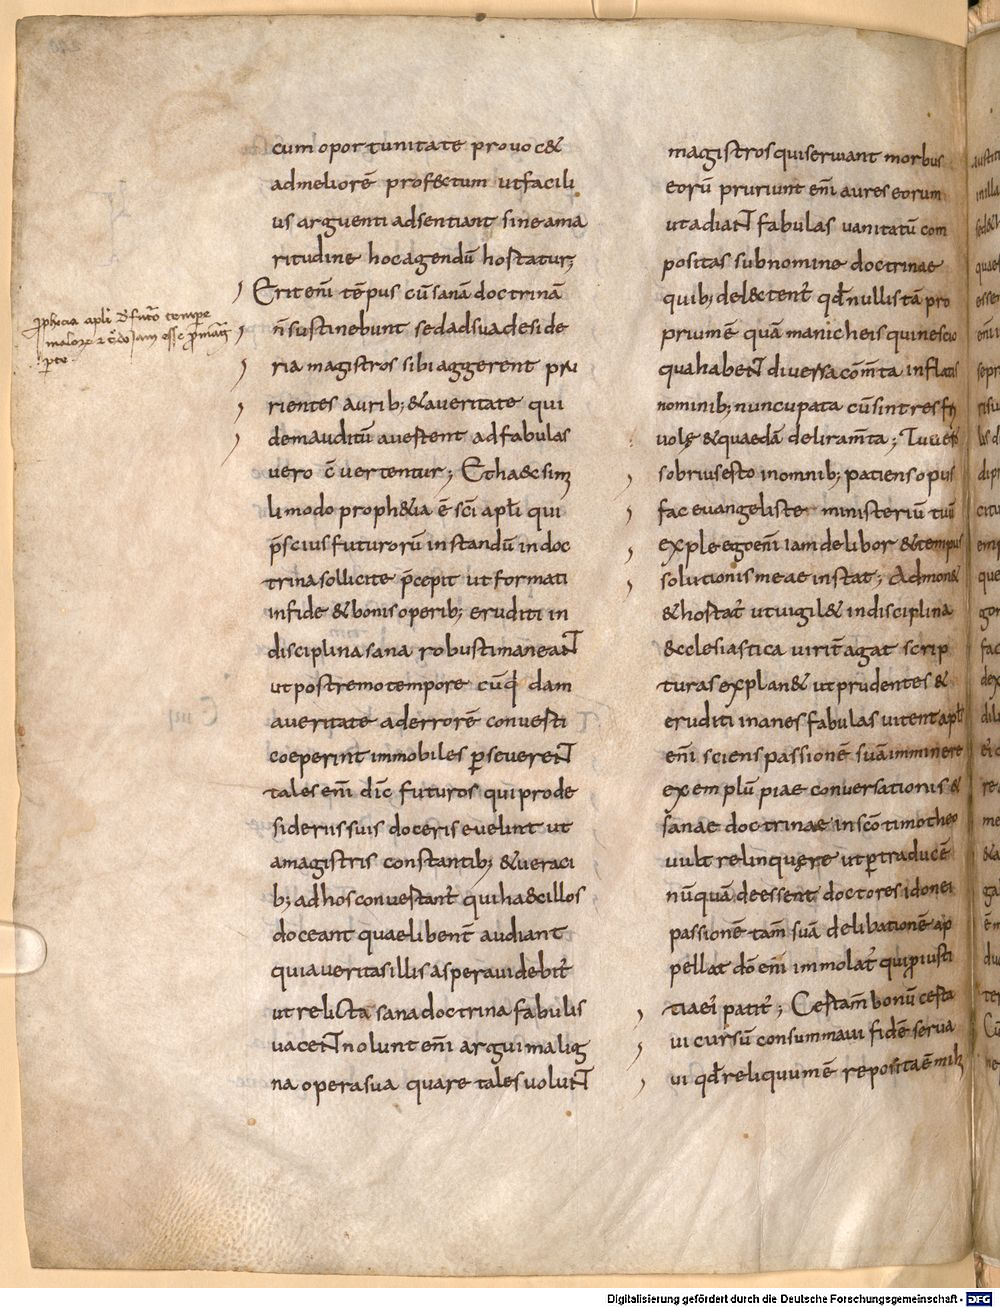 cum oportunitate prouoc&
admeliorē prof&ctum utfacili
us arguenti adsentiant sineama
ritudine hocagendū hostatur;
Erit em̄ tēpus cū sanā doctrinā
n̄ sustinebunt sedadsuadeside
ria magistros sibi aggerent pru
rientes aurib; & aueritate qui
dem auditū auertent adfabulas
uero c̄uertentur; Et ha&c sim
li modo proph&ia ē sc̄i apłi qui
p̄scius futurorū instandū indoc
trina sollicite p̄cepit ut formati
infide & bonis operib; eruditi in
disciplina sana robusti maneant
ut postremo tempore cū quidam
aueritate ad errorē conuerti
coeperint immobiles perseuerent
tales em̄ dic̄ futuros qui prode
sideriis suis doceris euelint ut
amagistris constantib; & ueraci
b; adhos conuertant̄ qui ha&c illos
doceant quae libent̄ audiant
quia ueritas illis aspera uidebit̄
ut relicta sana doctrina fabulis
uacent nolunt em̄ argui malig
na opera sua quare tales uolunt
magistros qui seruiant morbus
eorū pruriunt em̄ aures eorum
ut adiant fabulas uanitatū com
positas sub nomine doctrinae
quib; del&ctent̄ qđ nullis tā pro
prium ē quā manicheis qui nescio
qua habent diuersa cōm̄ta inflatis
nominib; nuncupata cū sint res fri
uolę & quaedā deliram̄ta; Tu uero
sobrius esto inomnib; patiens opus
fac euangeliste ministeriū tuū
exple ego em̄ iam delibor & tempus
solutionis meae instat; Admon&
& hostat̄ ut uigil& indisciplina
&cclesiastica uirit̄ agat scrip
turas explan& ut prudentes &
eruditi inanes fabulas uitent apłs
em̄ sciens passionē suā imminere
exemplū piae conuersationis &
sanae doctrinae in sc̄o timotheo
uult relinquere ut per traducē
nūquā deessent doctores idonei
passionē tam̄ suā delibationē ap
pellat dō em̄ immolat̄ qui p iusti
tia ei patit̄; Certam̄ bonū certa
ui cursū consummaui fidē serua
ui qđ reliquum ē reposita ē mihi